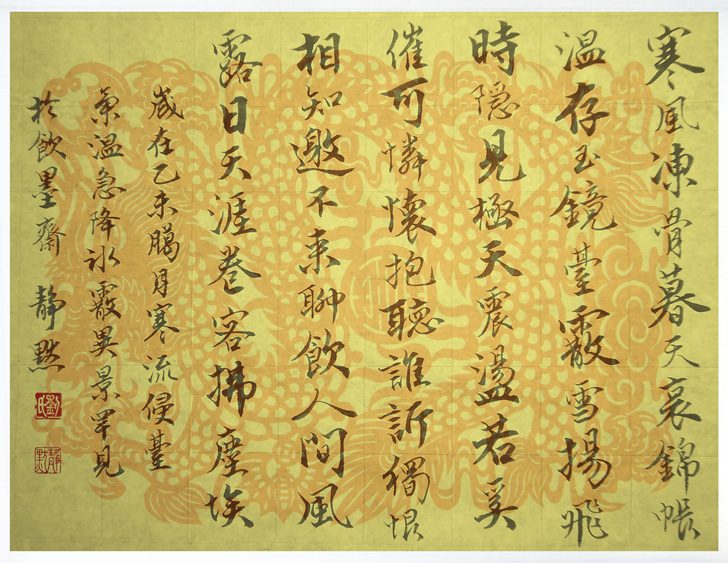 寒風凍骨暮天哀錦帳
溫存玉鏡臺霰雪揚飛
時隱見極天震盪若奚
催可憐懷抱聽誰訴獨恨
相知邀不来聊飲人間風
露日天涯卷客拂塵埃
歲在乙未臈月寒流侵臺
氣溫急降冰霰異景罕見
於飲墨齋 靜默
劉氏
靜默